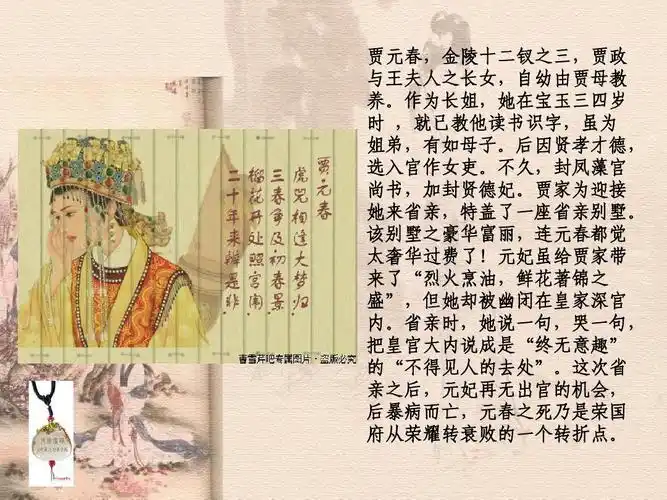 贾元春，金陵十二钗之三，贾政
与王夫人之长女，自幼由贾母教
养。作为长姐，她在宝玉三四岁
时 ，就已教他读书识字，虽为
姐弟，有如母子。后因贤孝才德，
选入宫作女吏。不久，封凤藻宫
尚书，加封贤德妃。贾家为迎接
她来省亲，特盖了一座省亲别墅。
该别墅之豪华富丽，连元春都觉
太奢华过费了！元妃虽给贾家带
来了“烈火烹油，鲜花著锦之
盛”，但她却被幽闭在皇家深宫
内。省亲时，她说一句，哭一句，
把皇宫大内说成是“终无意趣”
的“不得见人的去处”。这次省
亲之后，元妃再无出宫的机会，
后暴病而亡，元春之死乃是荣国
府从荣耀转衰败的一个转折点。
贾元春
虎兕相逢大梦归
三春争及初春景
榴花开处照宫闱
二十年来辨是非
曹雪芹吧专属图片·盗版必究